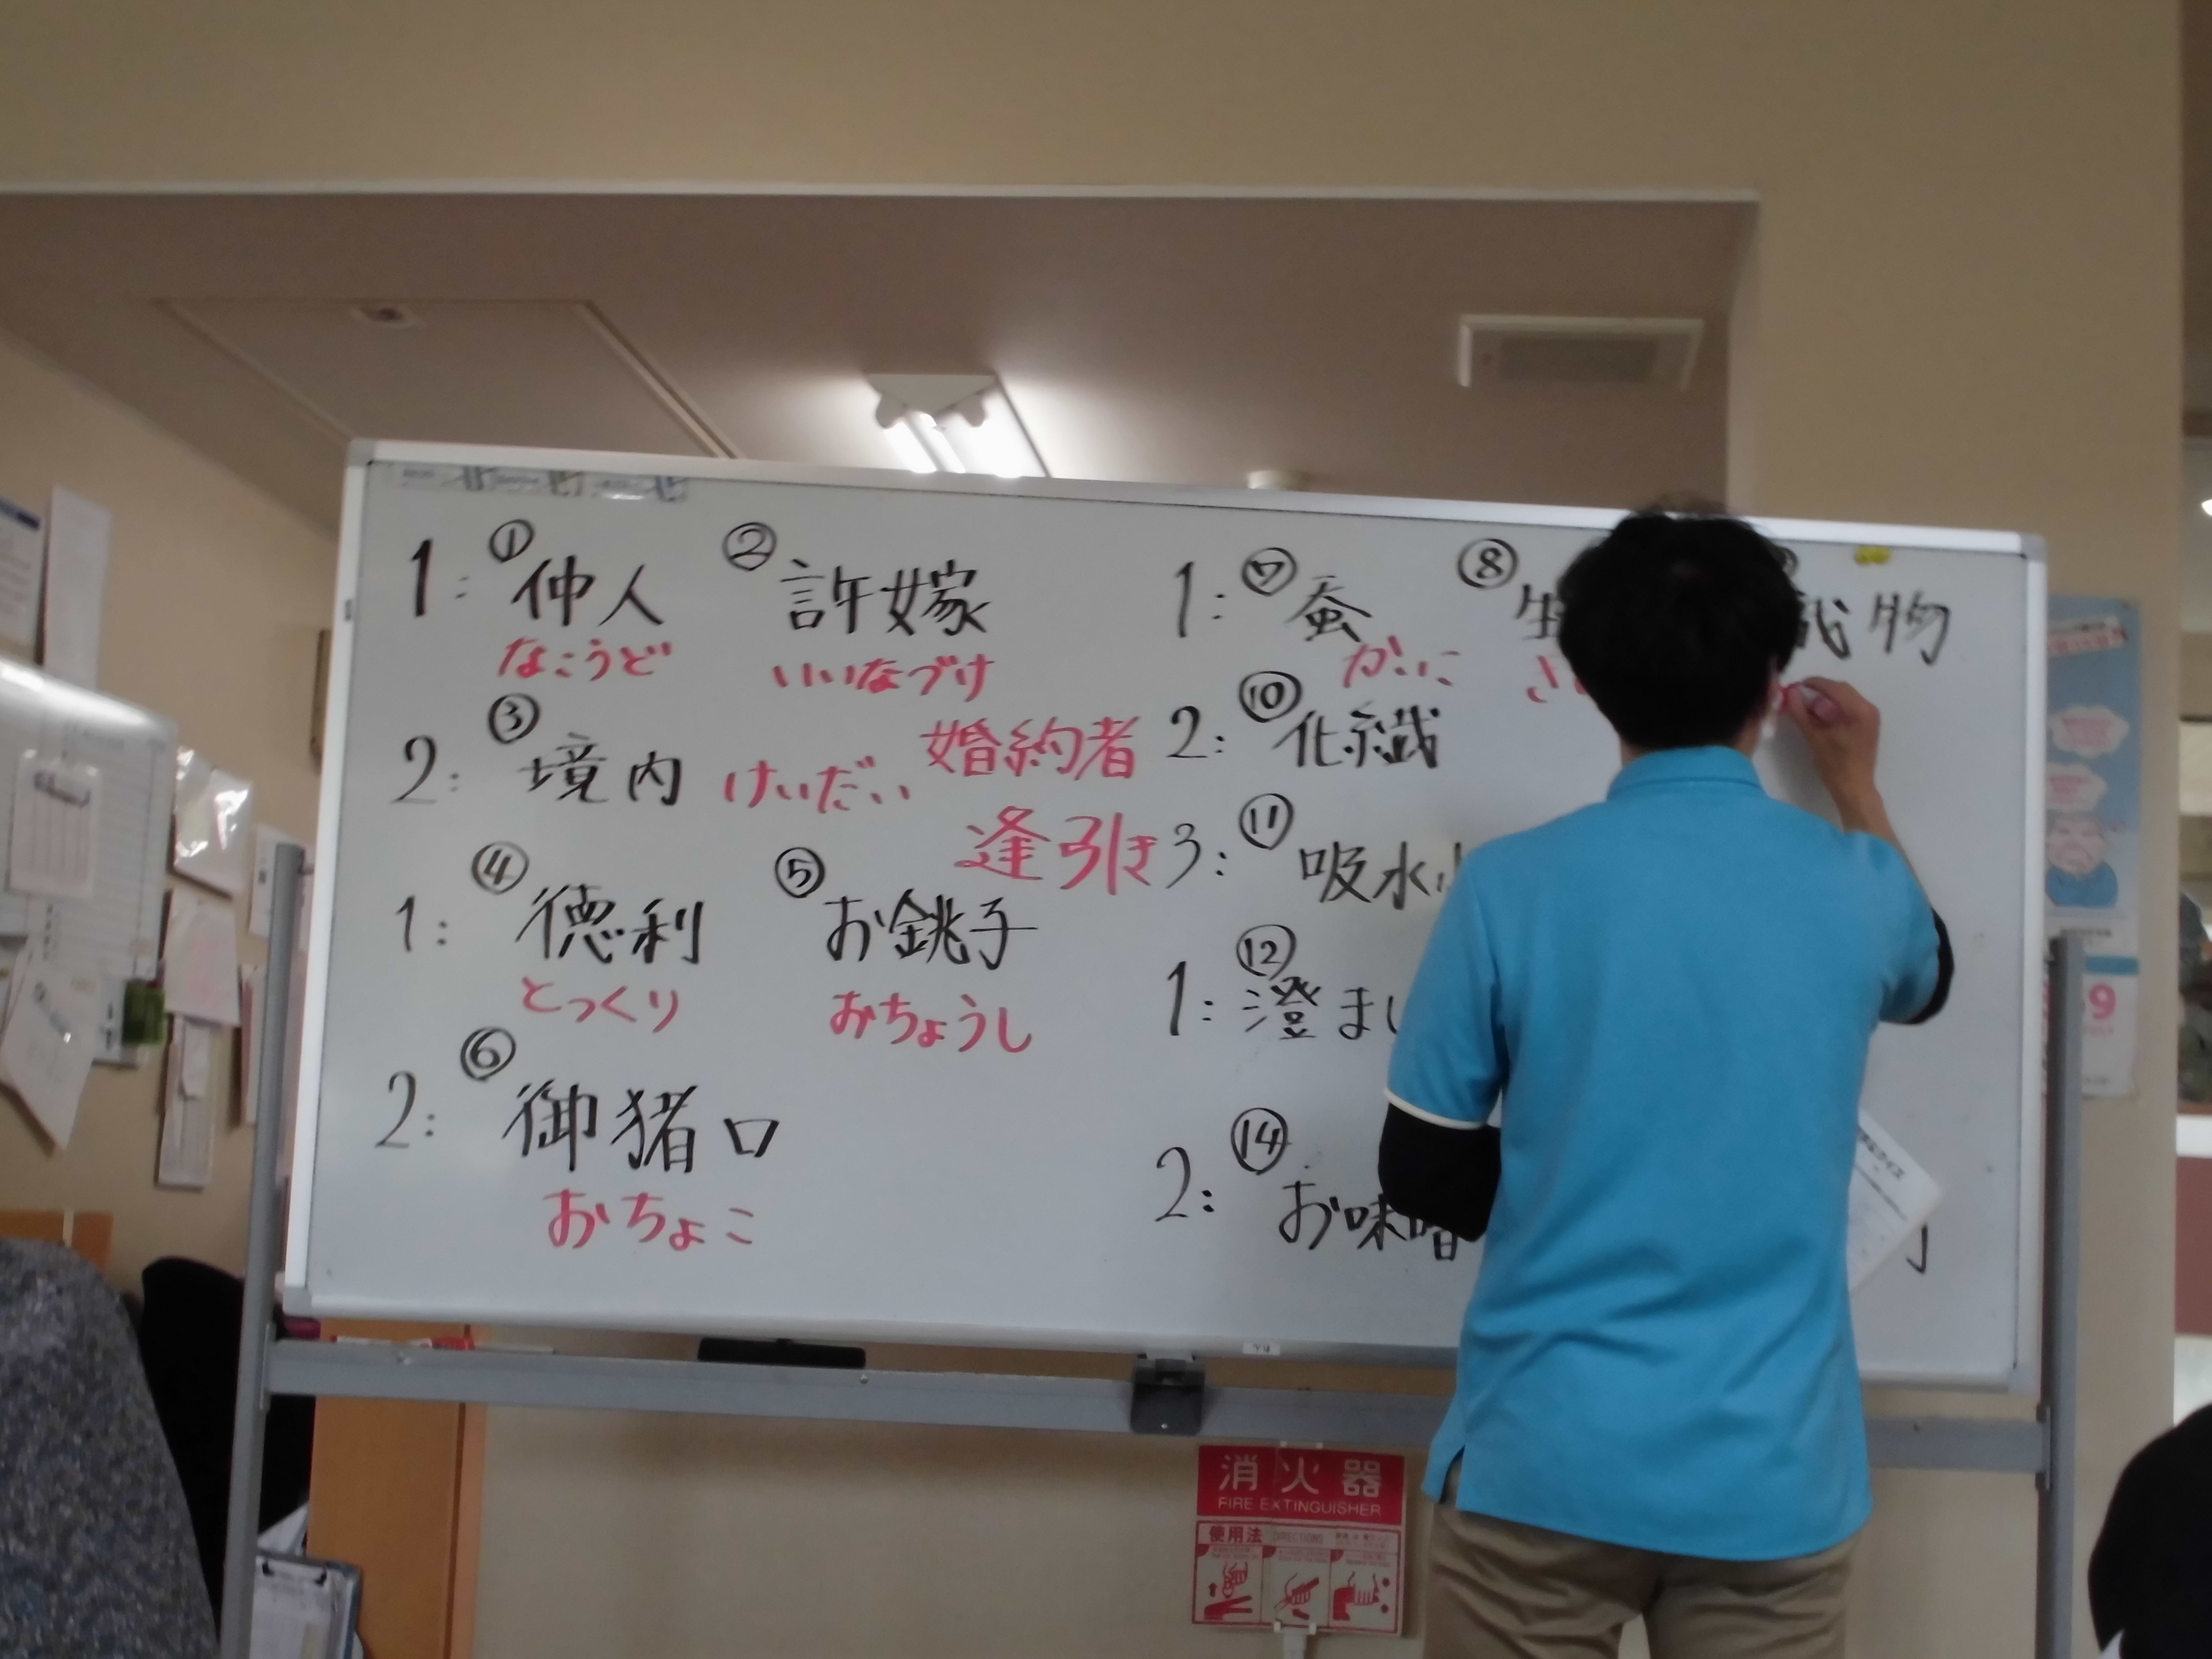 1: ①仲人 ②許嫁
なこうど いいなづけ
2: ③境内 けいだい 婚約者
逢引き
1: ④徳利 ⑤お銚子
とっくり おちょうし
2: ⑥御猪口
おちょこ
1: ⑦蚕 ⑧生 物
かいこ
2: ⑩化繊
3: ⑪吸水
1: ⑫澄まし
2: ⑭お味噌
9
消火器
FIRE EXTINGUISHER
使用法 DIRECTIONS